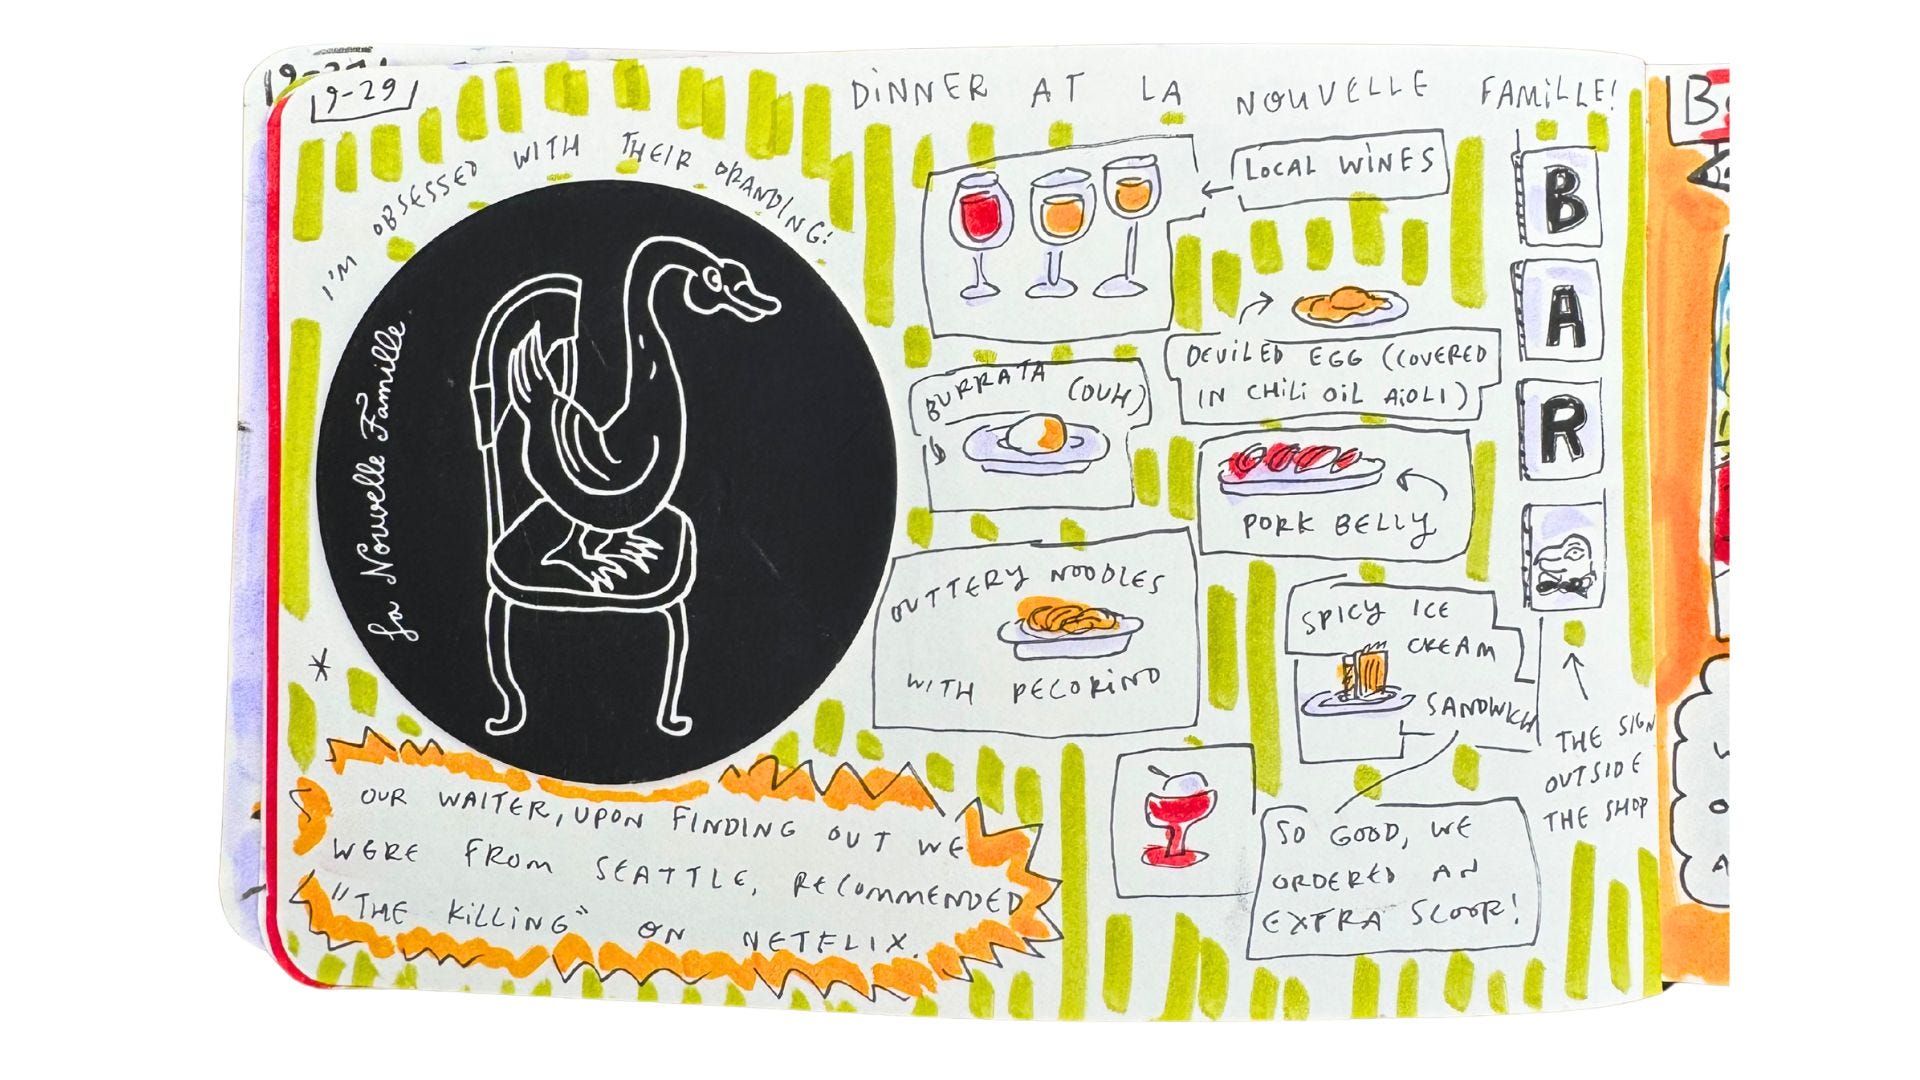 9-29
I'M OBSESSED WITH THEIR BRANDING!
La Nouvelle Famille
*
OUR WAITER, UPON FINDING OUT WE
WERE FROM SEATTLE, RECOMMENDED
"THE KILLING" ON NETFLIX.
DINNER AT LA NOUVELLE FAMILLE!
LOCAL WINES
DEVILED EGG (COVERED
IN CHILI OIL AIOLI)
BURRATA (DUH)
PORK BELLY
BUTTERY NOODLES
WITH PECORINO
SPICY ICE
CREAM
SANDWICH
SO GOOD, WE
ORDERED AN
EXTRA SCOOP!
B
A
R
THE SIGN
OUTSIDE
THE SHOP